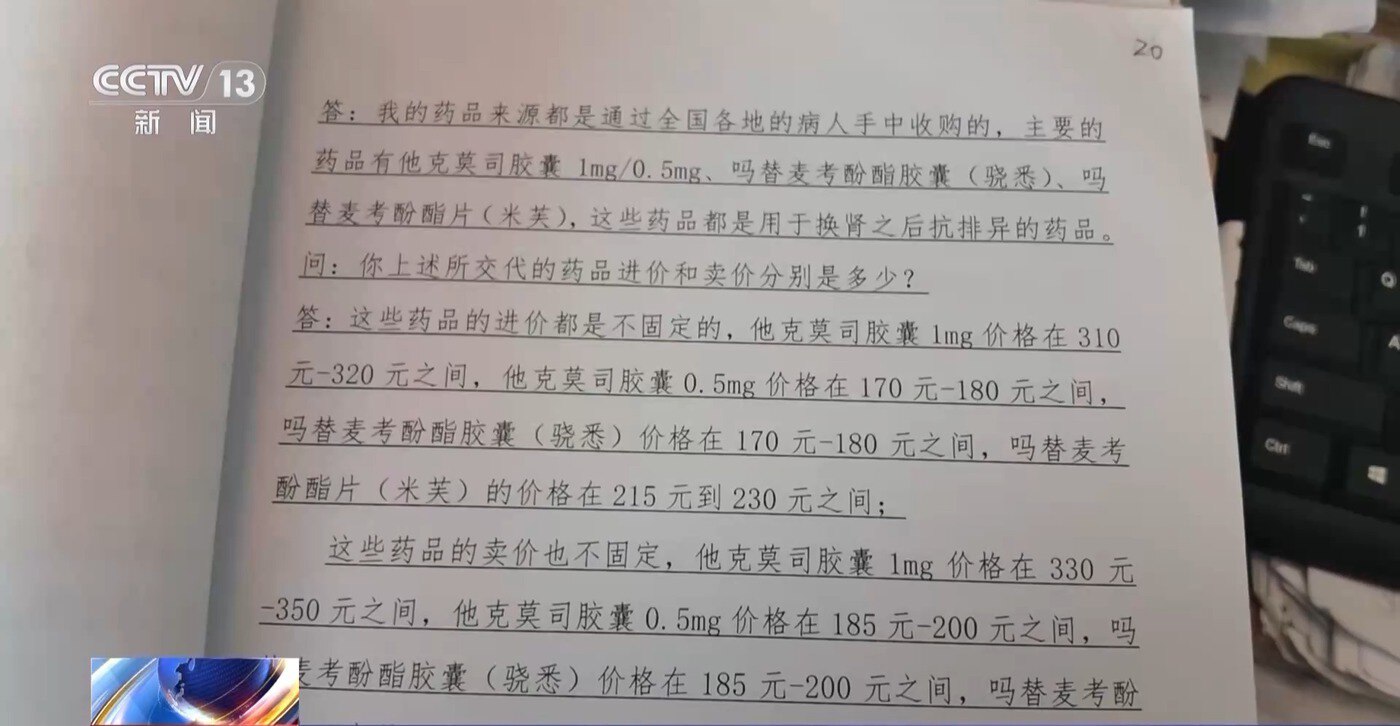 CCTV 13
新闻
20
答：我的药品来源都是通过全国各地的病人手中收购的，主要的
药品有他克莫司胶囊 1mg/0.5mg、吗替麦考酚酯胶囊（骁悉）、吗
替麦考酚酯片（米芙），这些药品都是用于换肾之后抗排异的药品。
问：你上述所交代的药品进价和卖价分别是多少？
答：这些药品的进价都是不固定的，他克莫司胶囊 1mg 价格在 310
元-320 元之间，他克莫司胶囊 0.5mg 价格在 170 元-180 元之间，
吗替麦考酚酯胶囊（骁悉）价格在 170 元-180 元之间，吗替麦考
酚酯片（米芙）的价格在 215 元到 230 元之间；
这些药品的卖价也不固定，他克莫司胶囊 1mg 价格在 330 元
-350 元之间，他克莫司胶囊 0.5mg 价格在 185 元-200 元之间，吗
麦考酚酯胶囊（骁悉）价格在 185 元-200 元之间，吗替麦考酚
Esc
Tab
Q
Caps
A
Shift
Ctrl